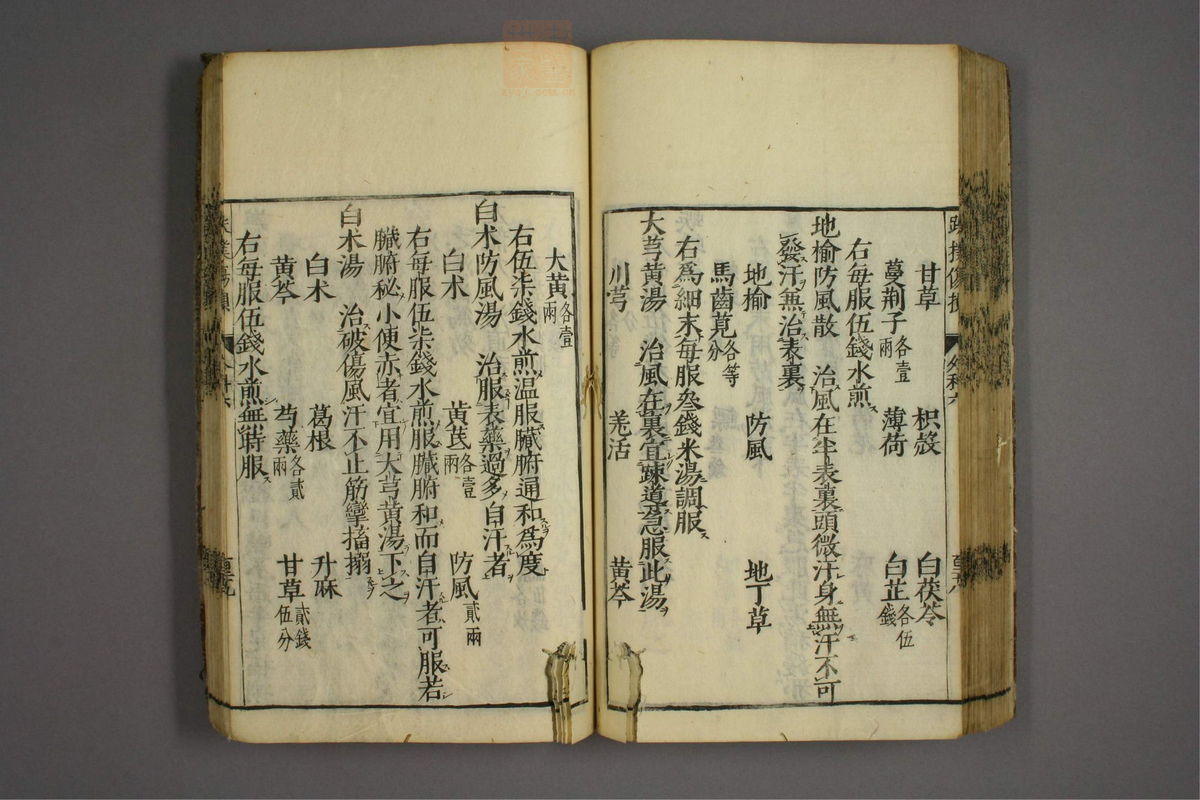 甘草　枳殼　白茯苓
蔓荆子各壹兩　薄荷　白芷各伍錢
右每服伍錢水煎
地榆防風散　治風在半表裏頭微汗身無汗不可
發汗無治表裏
地榆　防風　地丁草
馬齒莧各等分
右爲細末每服叁錢米湯調服
大芎黄湯　治風在裏宜踈導急服此湯
川芎　羌活　黄芩
大黄各壹兩
右伍柒錢水煎温服臟腑通和爲度
白朮防風湯　治服表藥過多自汗者
白朮　黄芪各壹兩　防風貳兩
右每服伍柒錢水煎服臟腑和而自汗者可服若
臟腑秘小便赤者宜用大芎黄湯下之
白朮湯　治破傷風汗不止筋攣搐搦
白朮　葛根　升麻
黄芩　芍藥各貳兩　甘草貳錢伍分
右每服伍錢水煎無時服